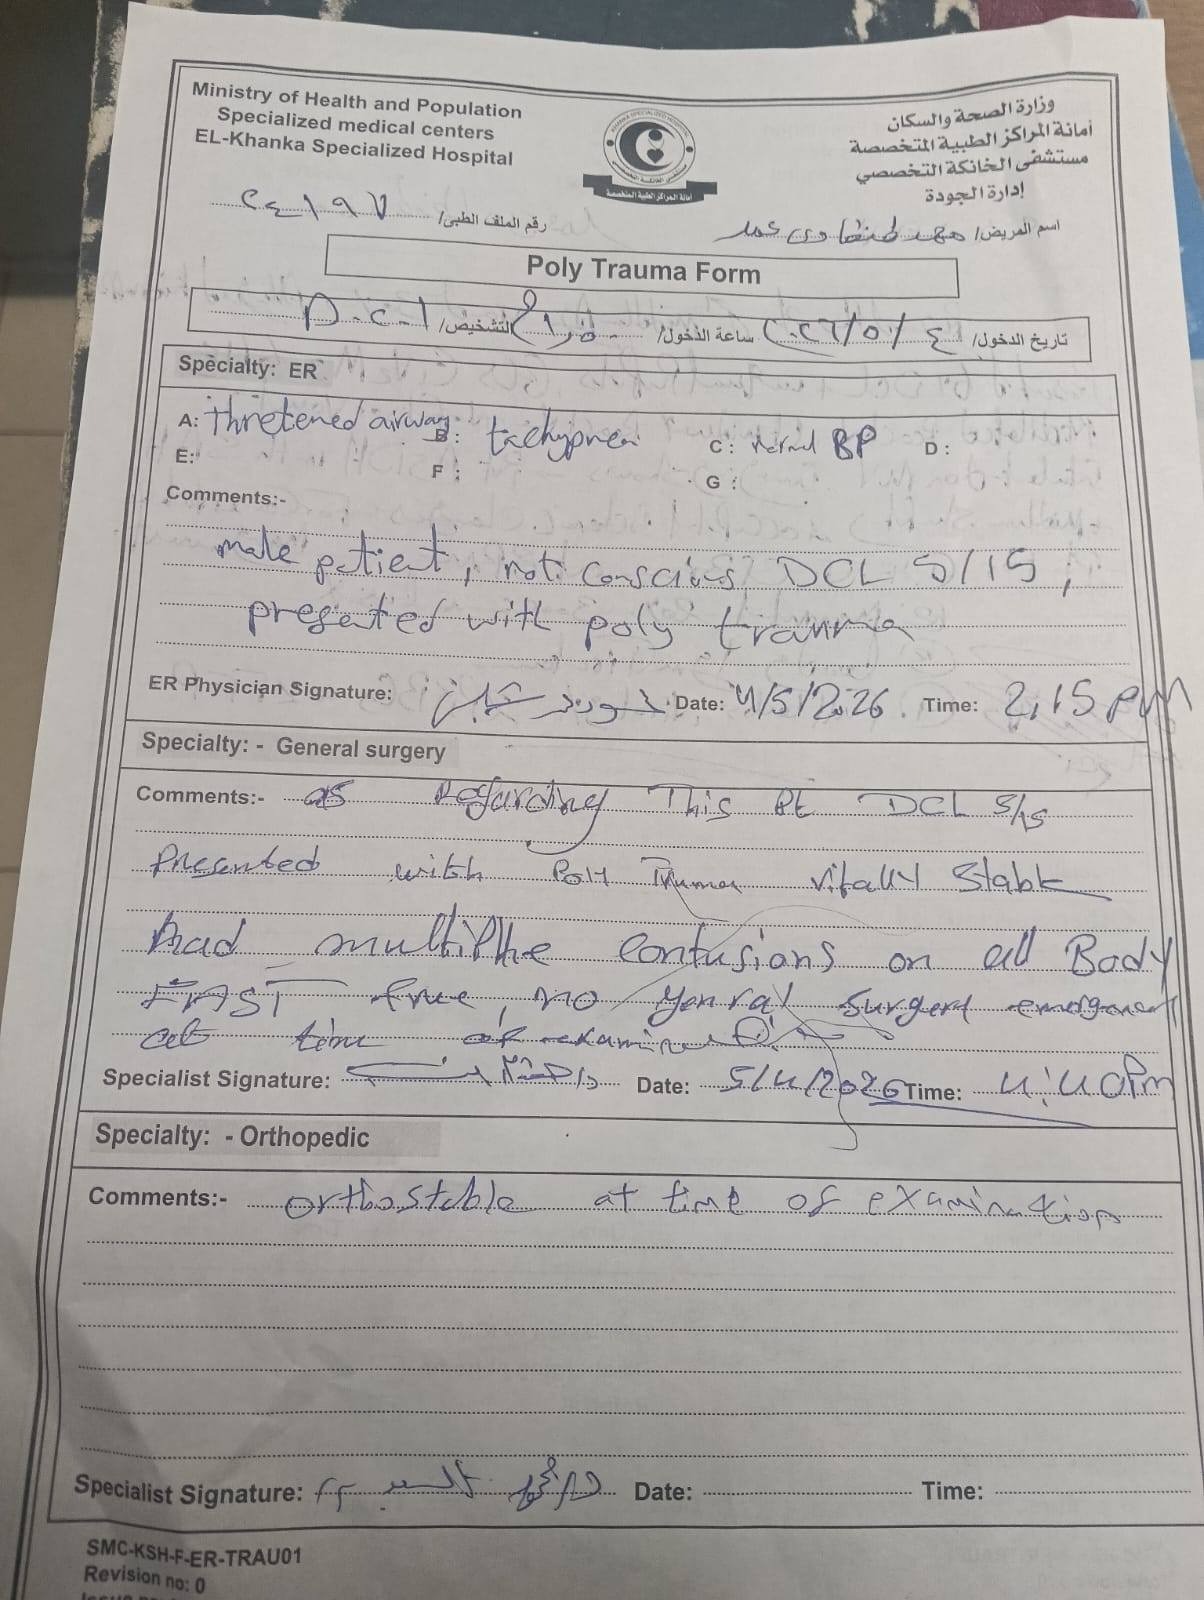 Ministry of Health and Population
Specialized medical centers
EL-Khanka Specialized Hospital
وزارة الصحة والسكان
أمانة المراكز الطبية المتخصصة
مستشفى الخانكة التخصصي
إدارة الجودة
KHANKA SPECIALIZED HOSPITAL
أمانة المراكز الطبية المتخصصة
اسم المريض/ محمد طنطاوى
رقم الملف الطبى/ ٢٤١٩٧
Poly Trauma Form
تاريخ الدخول/ ٢٠٢٦/٥/٤ ساعة الدخول/ التشخيص/ D.C.L
Specialty: ER
A: thretened airway B: tachypnea C: normal BP D:
E: F: G:
Comments:-
male patient, not conscious, DCL 5/15,
presented with poly trauma
ER Physician Signature: Date: 4/5/2026 Time: 2,15 pm
Specialty: - General surgery
Comments:- as Regarding This Pt DCL 5/15
Presented with Poly Truma vitally Stable
had multiple contusions on all Body
FAST free, no genral surgery emergency
at time of
Specialist Signature: Date: 5/4/2026 Time: 4:40Pm
Specialty: - Orthopedic
Comments:- orthostable at time of examination
Specialist Signature: Date: Time:
SMC-KSH-F-ER-TRAU01
Revision no: 0